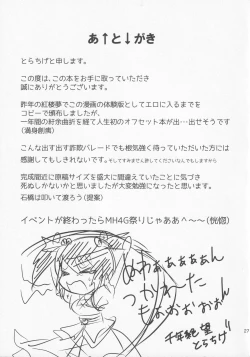 あ↑と↓がき
とらちげと申します。
この度は、この本をお手に取っていただき
誠にありがとうございます。
昨年の紅楼夢でこの漫画の体験版としてエロに入るまでを
コピーで頒布しましたが、
一年間の紆余曲折を経て人生初のオフセット本が出…出せそうです
(満身創痍)
こんな出す出す詐欺パレードでも根気強く待っていただいた方には
感謝してもしきれないです。そしてすみません許してくださいなんでもしますから
完成間近に原稿サイズを盛大に間違えていたことに気づき
死ぬしかないかと思いましたが大変勉強になったと思います
石橋は叩いて渡ろう(提案)
イベントが終わったらMH4G祭りじゃああ^～～(恍惚)
めわぁぁぁぁぁん
つかれーた
もぉぉぉぉぉん
千年絶望
とらちげ
27